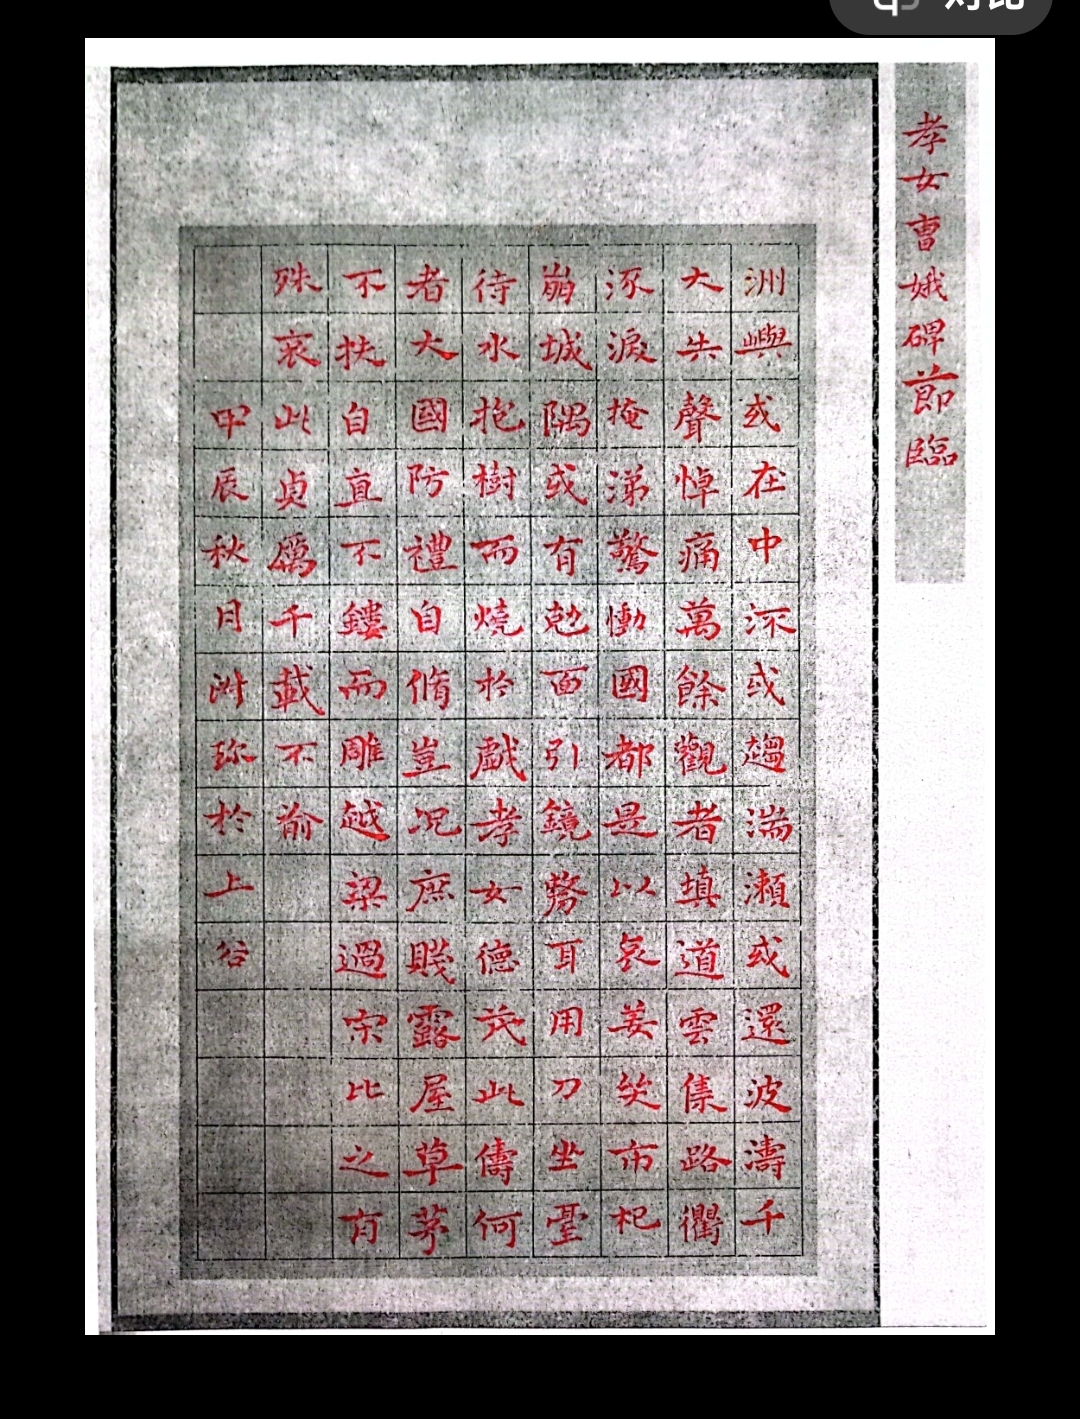 孝女曹娥碑節臨
洲嶼或在中沠或趨湍瀨或還波濤千
大失聲悼痛萬餘觀者填道雲集路衢
泳淚掩涕驚慟國都是以哀姜哭市杞
崩城隅或有勊面引鏡剺耳用刀坐臺
待水抱樹而燒於戲孝女德茂此儔何
者大國防禮自脩豈况庶賤露屋草茅
不扶自直不鏤而雕越梁過宋比之有
殊哀此貞厲千載不渝
甲辰秋月於上谷